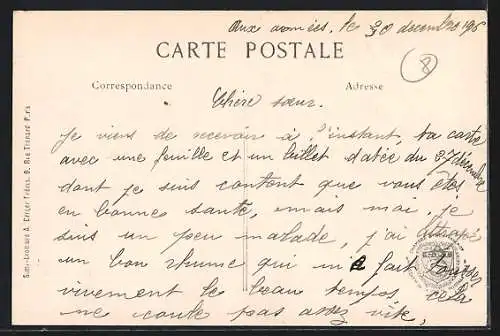 Aux armées, le 30 decembre 196
CARTE POSTALE
8
Correspondance
Adresse
Chère sœur.
Je viens de recevoir à l'instant, ta carte
avec une feuille et un billet datée du 27 décembre
dont je suis contont que vous êtes
en bonne santé, mais moi, je
suis un peu malade, j'ai attrapé
un bon rhume qui m'a fait tousser
vivement le beau temps, cela
ne coute pas assez vite,
9, Rue